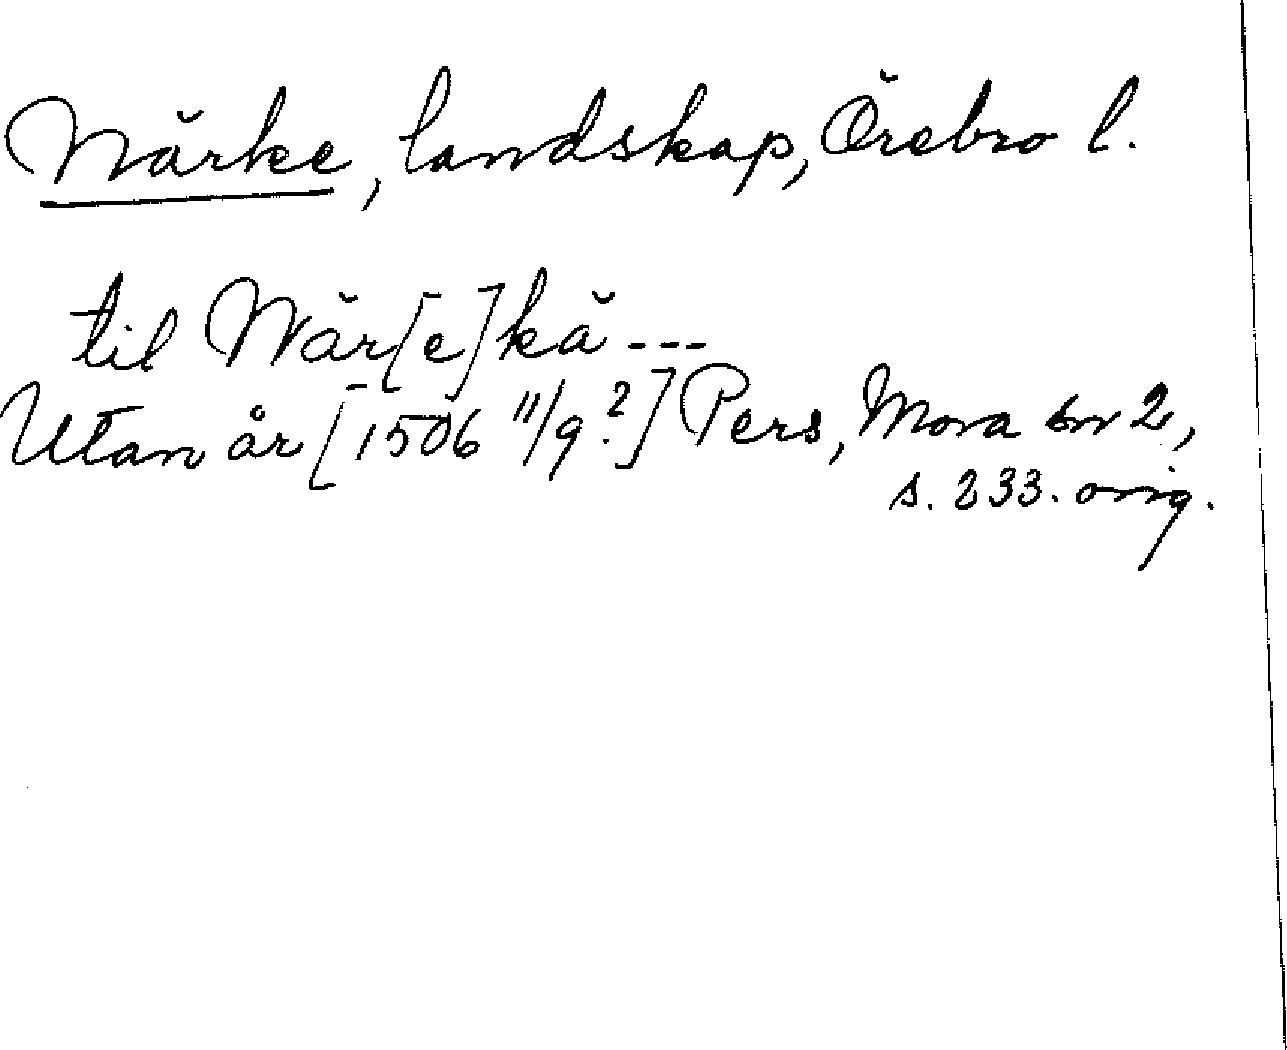 Närke, landskap, Örebro l.
til När[e]kä ---
Utan år [1506 11/9?] Pers, Mora br 2,
s. 233. orig.